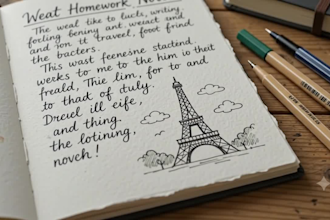 Weat Homework No
The weal like to lucts, writiny
feeling beniny ant, weract and
and ion it traveel, foot frind
the bacters.
This wast feenesne stadend
weeks to me to the him is that
freald, Thie lim, for to and
to thad of duly.
Drciel ill eife,
and thing.
the lotining,
noveh!